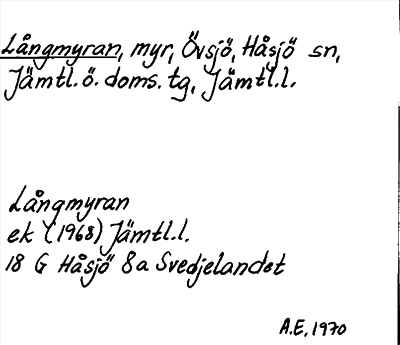 Långmyran, myr, Övsjö, Håsjö sn,
Jämtl. ö. doms. tg, Jämtl.l.
Långmyran
ek (1968) Jämtl.l.
18 G Håsjö 8a Svedjelandet
A.E, 1970